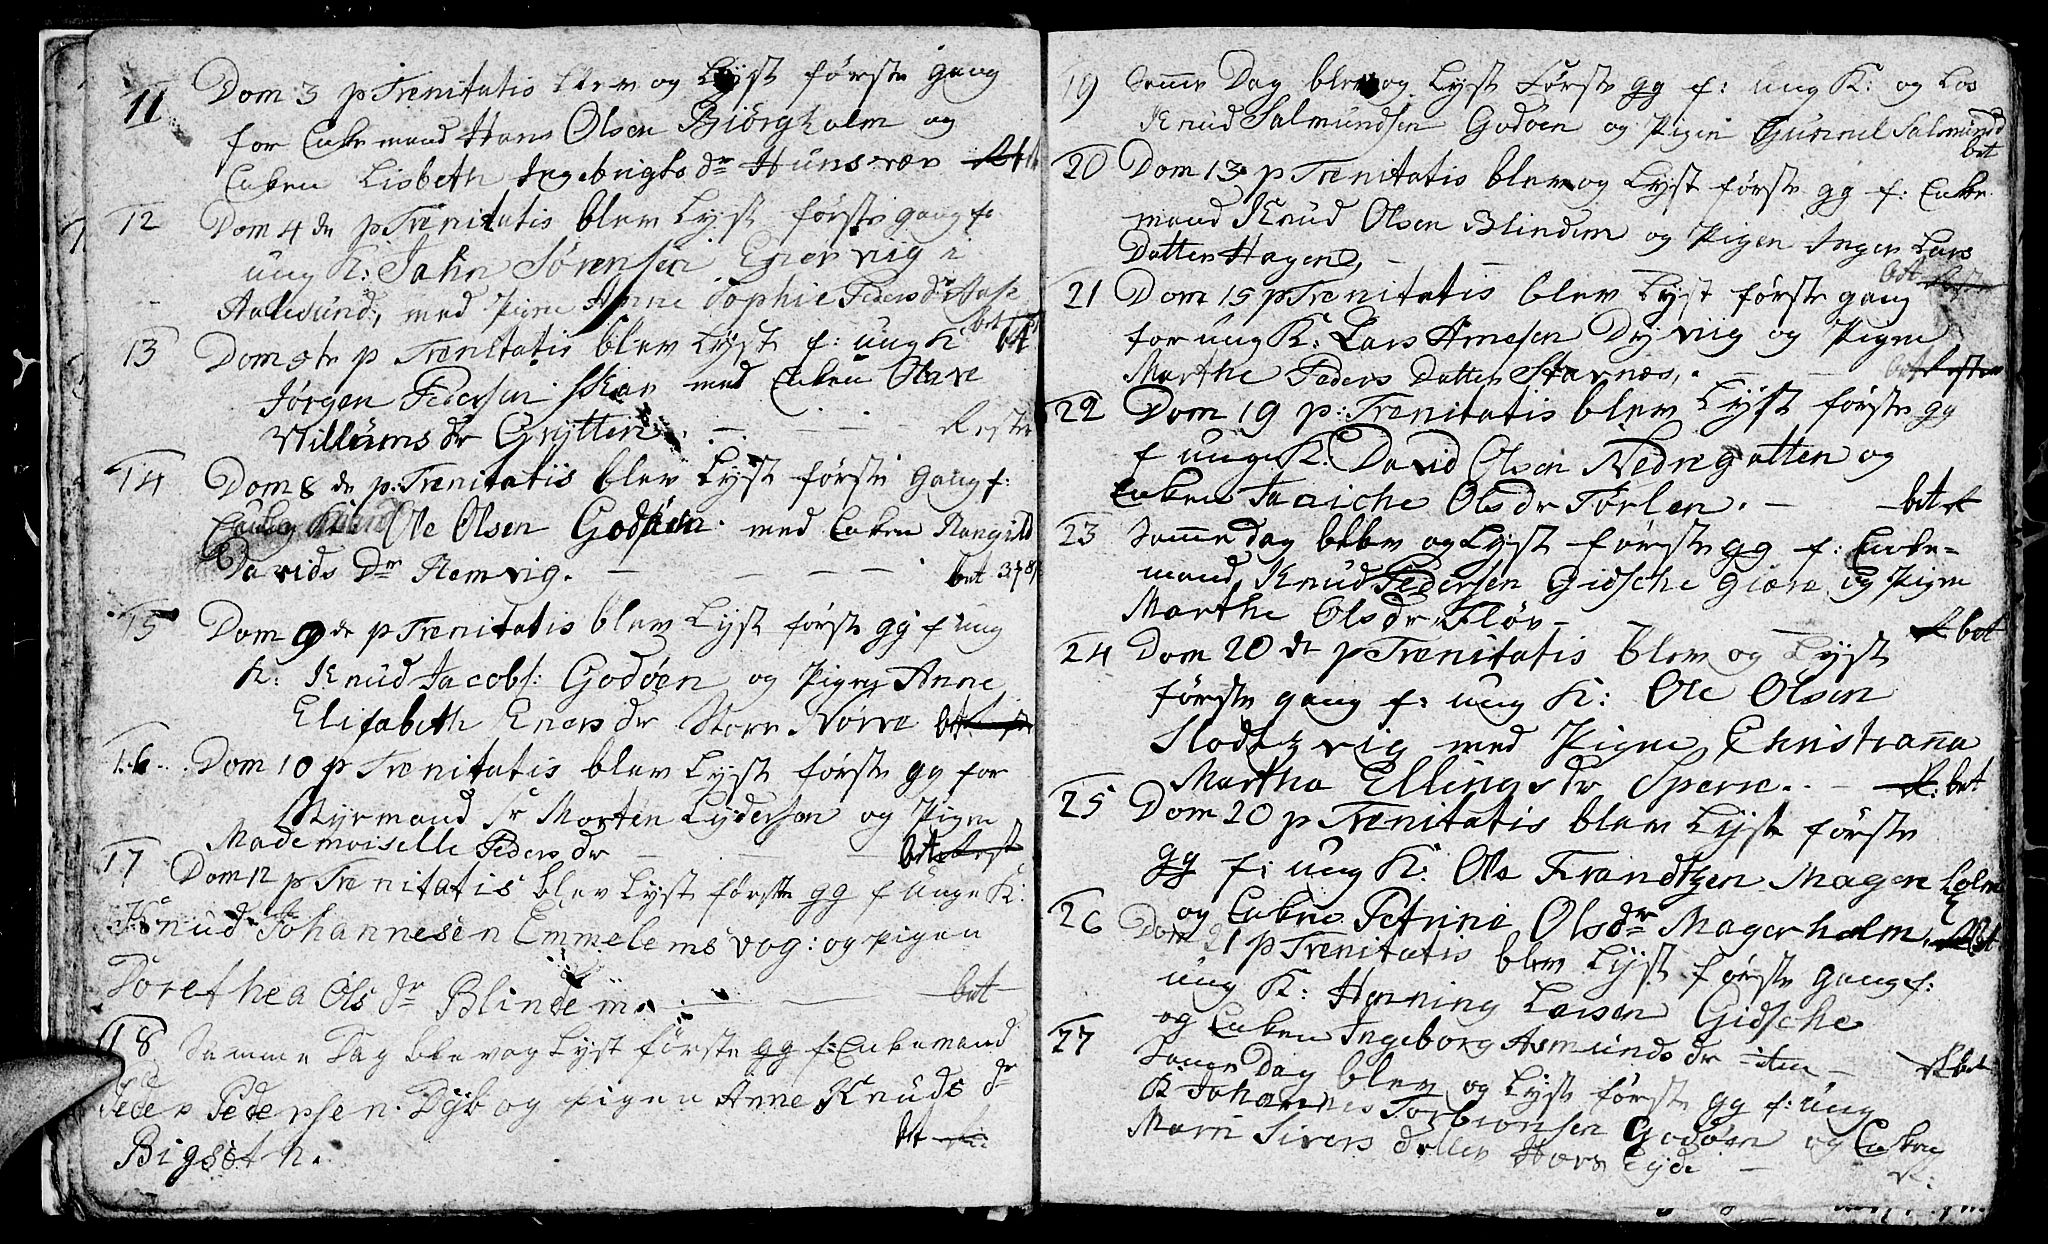 11 Dom 3 p Trenitatis blev og Lyst første gang
for Enke mand Hans Olsen Biørgholm og
Enken Lisbeth Ingebrigts dr Hunsvær
12 Dom 4 de p Trenitatis blev Lyst første gang f.
ung K: Jahn Sørensen Egiervig i
Aalesund, med Pigen Anne Sophie Peders dr Aase
bet
13 Dom 5te p Trenitatis blev Lyst f: ung K
Jørgen Pedersen Skar med Enken Olave
Villums dr Grytten. - - - - Rester
14 Dom 8 de p: Trenitatiis blev Lyst første gang f:
Ole Olsen Godøen. med Enken Rangild
Davids Dr Remvig. - - - - bet 378
15 Dom 9 de p Trenitatis blev Lyst første gg f ung
K: Knud Jacobs: Godøen og Pigen Anne
Elisabeth Eners dr Store Nørve bet
16 Dom 10 p Trenitatis blev Lyst første gg for
Styrmand Sr Morten Lydersen og Pigen
Mademoiselle Peders dr - - - bet Rest
17 Dom 12 p Trenitatis blev Lyst første gg f Unge K:
Knud Johannesen Emmelems vog: og pigen
Dorethea Ols dr Blindem. - - bet
18 Samme Dag blev og Lyst første gg f: Enkemand
Peder Pedersen. Dyb og pigen Anne Knuds dr
bet
Bigseth.
19 Samme Dag blev og Lyst Første gg f: ung K: og Los
Knud Salmundsen Godøen og Pigen Gunnil Salmunds
bet
20 Dom 13 p Trenitatis blev og Lyst første gg f: Enke
mand Knud Olsen Blindem og Pigen Inger Lars
Datter Hagen, - - bet
21 Dom 15 p Trenitatis blev Lyst første gang
for ung K: Lars Arnesen Dyrviig og Pigen
Marthe Peders Datter Starnæs. - - bet Rester
22 Dom 19 p: Trenitatis blev Lyst første gg
f ung K. David Olsen Nedregotten og
Enken Olsdr Tørlen. - - bet
23 Samme dag blev og Lyst første gg f: Enke-
mand Knud Pedersen Gidsche giære og Pigen
Marthe Olsdr Fløv - - - R bet
24 Dom 20 de p Trenitatis blev og Lyst
første gang f: ung K: Ole Olsen
Slodtzvig med Pigen Christiana
Martha Ellings dr Sperre. - R: bet
25 Dom 20 p Trenitatis blev Lyst første
gg f: ung K: Ole Frandtzen Mager holm
og Enken Petrine Olsdr Magerholm. bet
26 Dom 21 p Trenitatis blev Lyst første gang f:
ung K: Henning Larsen Gidsche
og Enken Ingeborg Asmunds dr item - R bet
27 Samme Dag blev og Lyst første gg f: ung
K Johannes Torbiønsen Godøen og Enken
Marri Sivers datter Hovs Eyde - R: